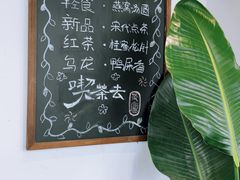 轻食 · 燕窝汤圆
新品 · 宋代点茶
红茶 · 桂香龙井
乌龙 · 鸭屎香
喫茶去